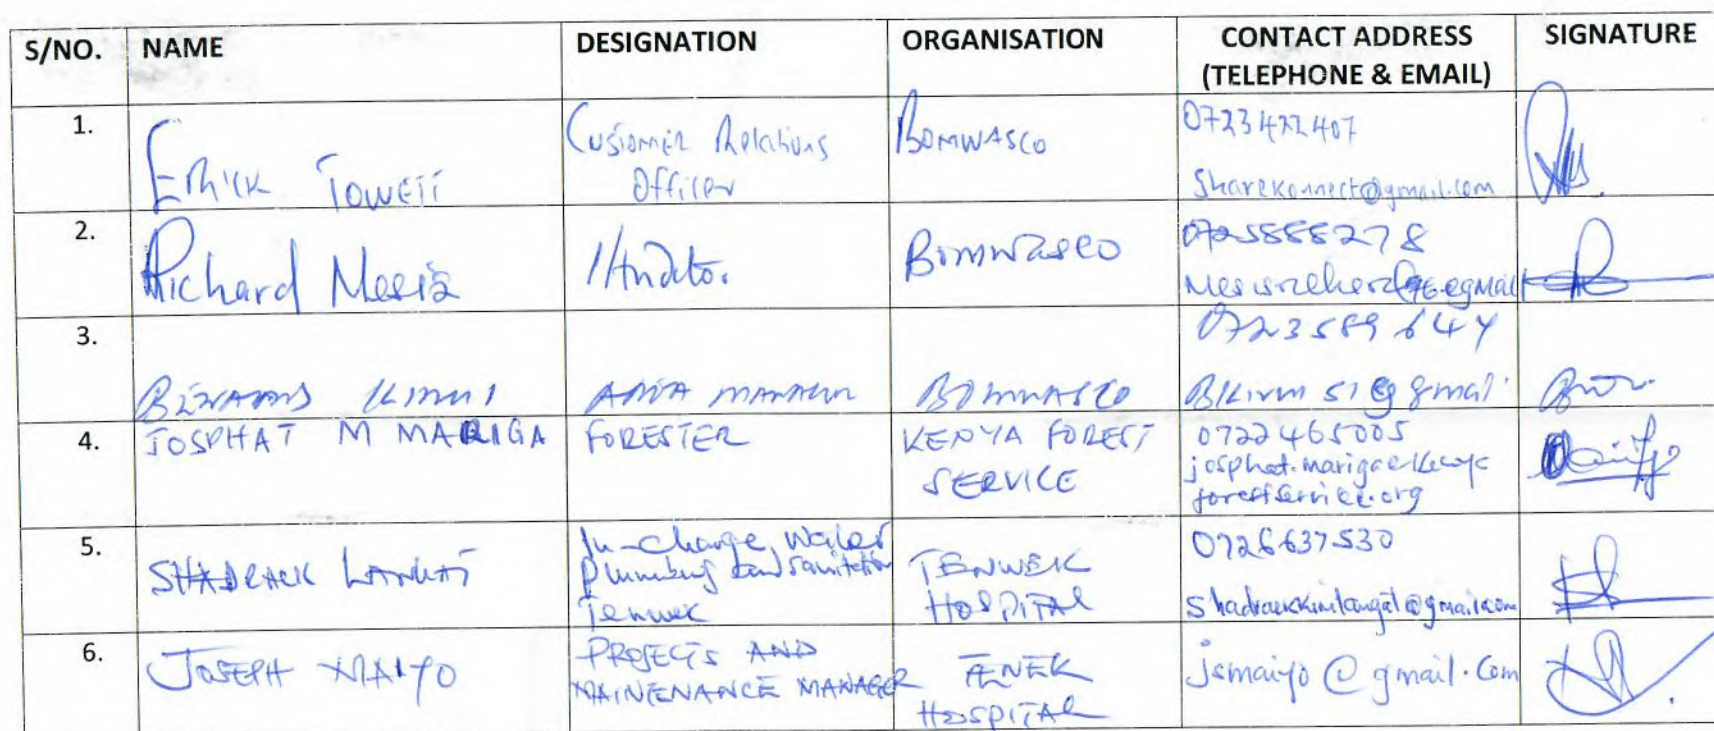 S/NO. NAME DESIGNATION ORGANISATION CONTACT ADDRESS (TELEPHONE & EMAIL) SIGNATURE
1. Erick Towett Customer Relations Officer BOMWASCO 0723422407
Sharekonnect@gmail.com
2. Richard Mesis Bomwasco
3. 0723589644
KIMUI AREA MANAGER BOMWASCO
4. JOSPHAT M MARIGA FORESTER KENYA FOREST SERVICE 0722465005
josphat.mariga@kenya
forestservice.org
5. SHADRACK LANGAT In-charge, water plumbing and sanitation Tenwek TENWEK HOSPITAL 0726637530
shadrackkimlangat@gmail.com
6. JOSEPH MAIYO PROJECTS AND MAINTENANCE MANAGER TENEK HOSPITAL jsmaiyo@gmail.com